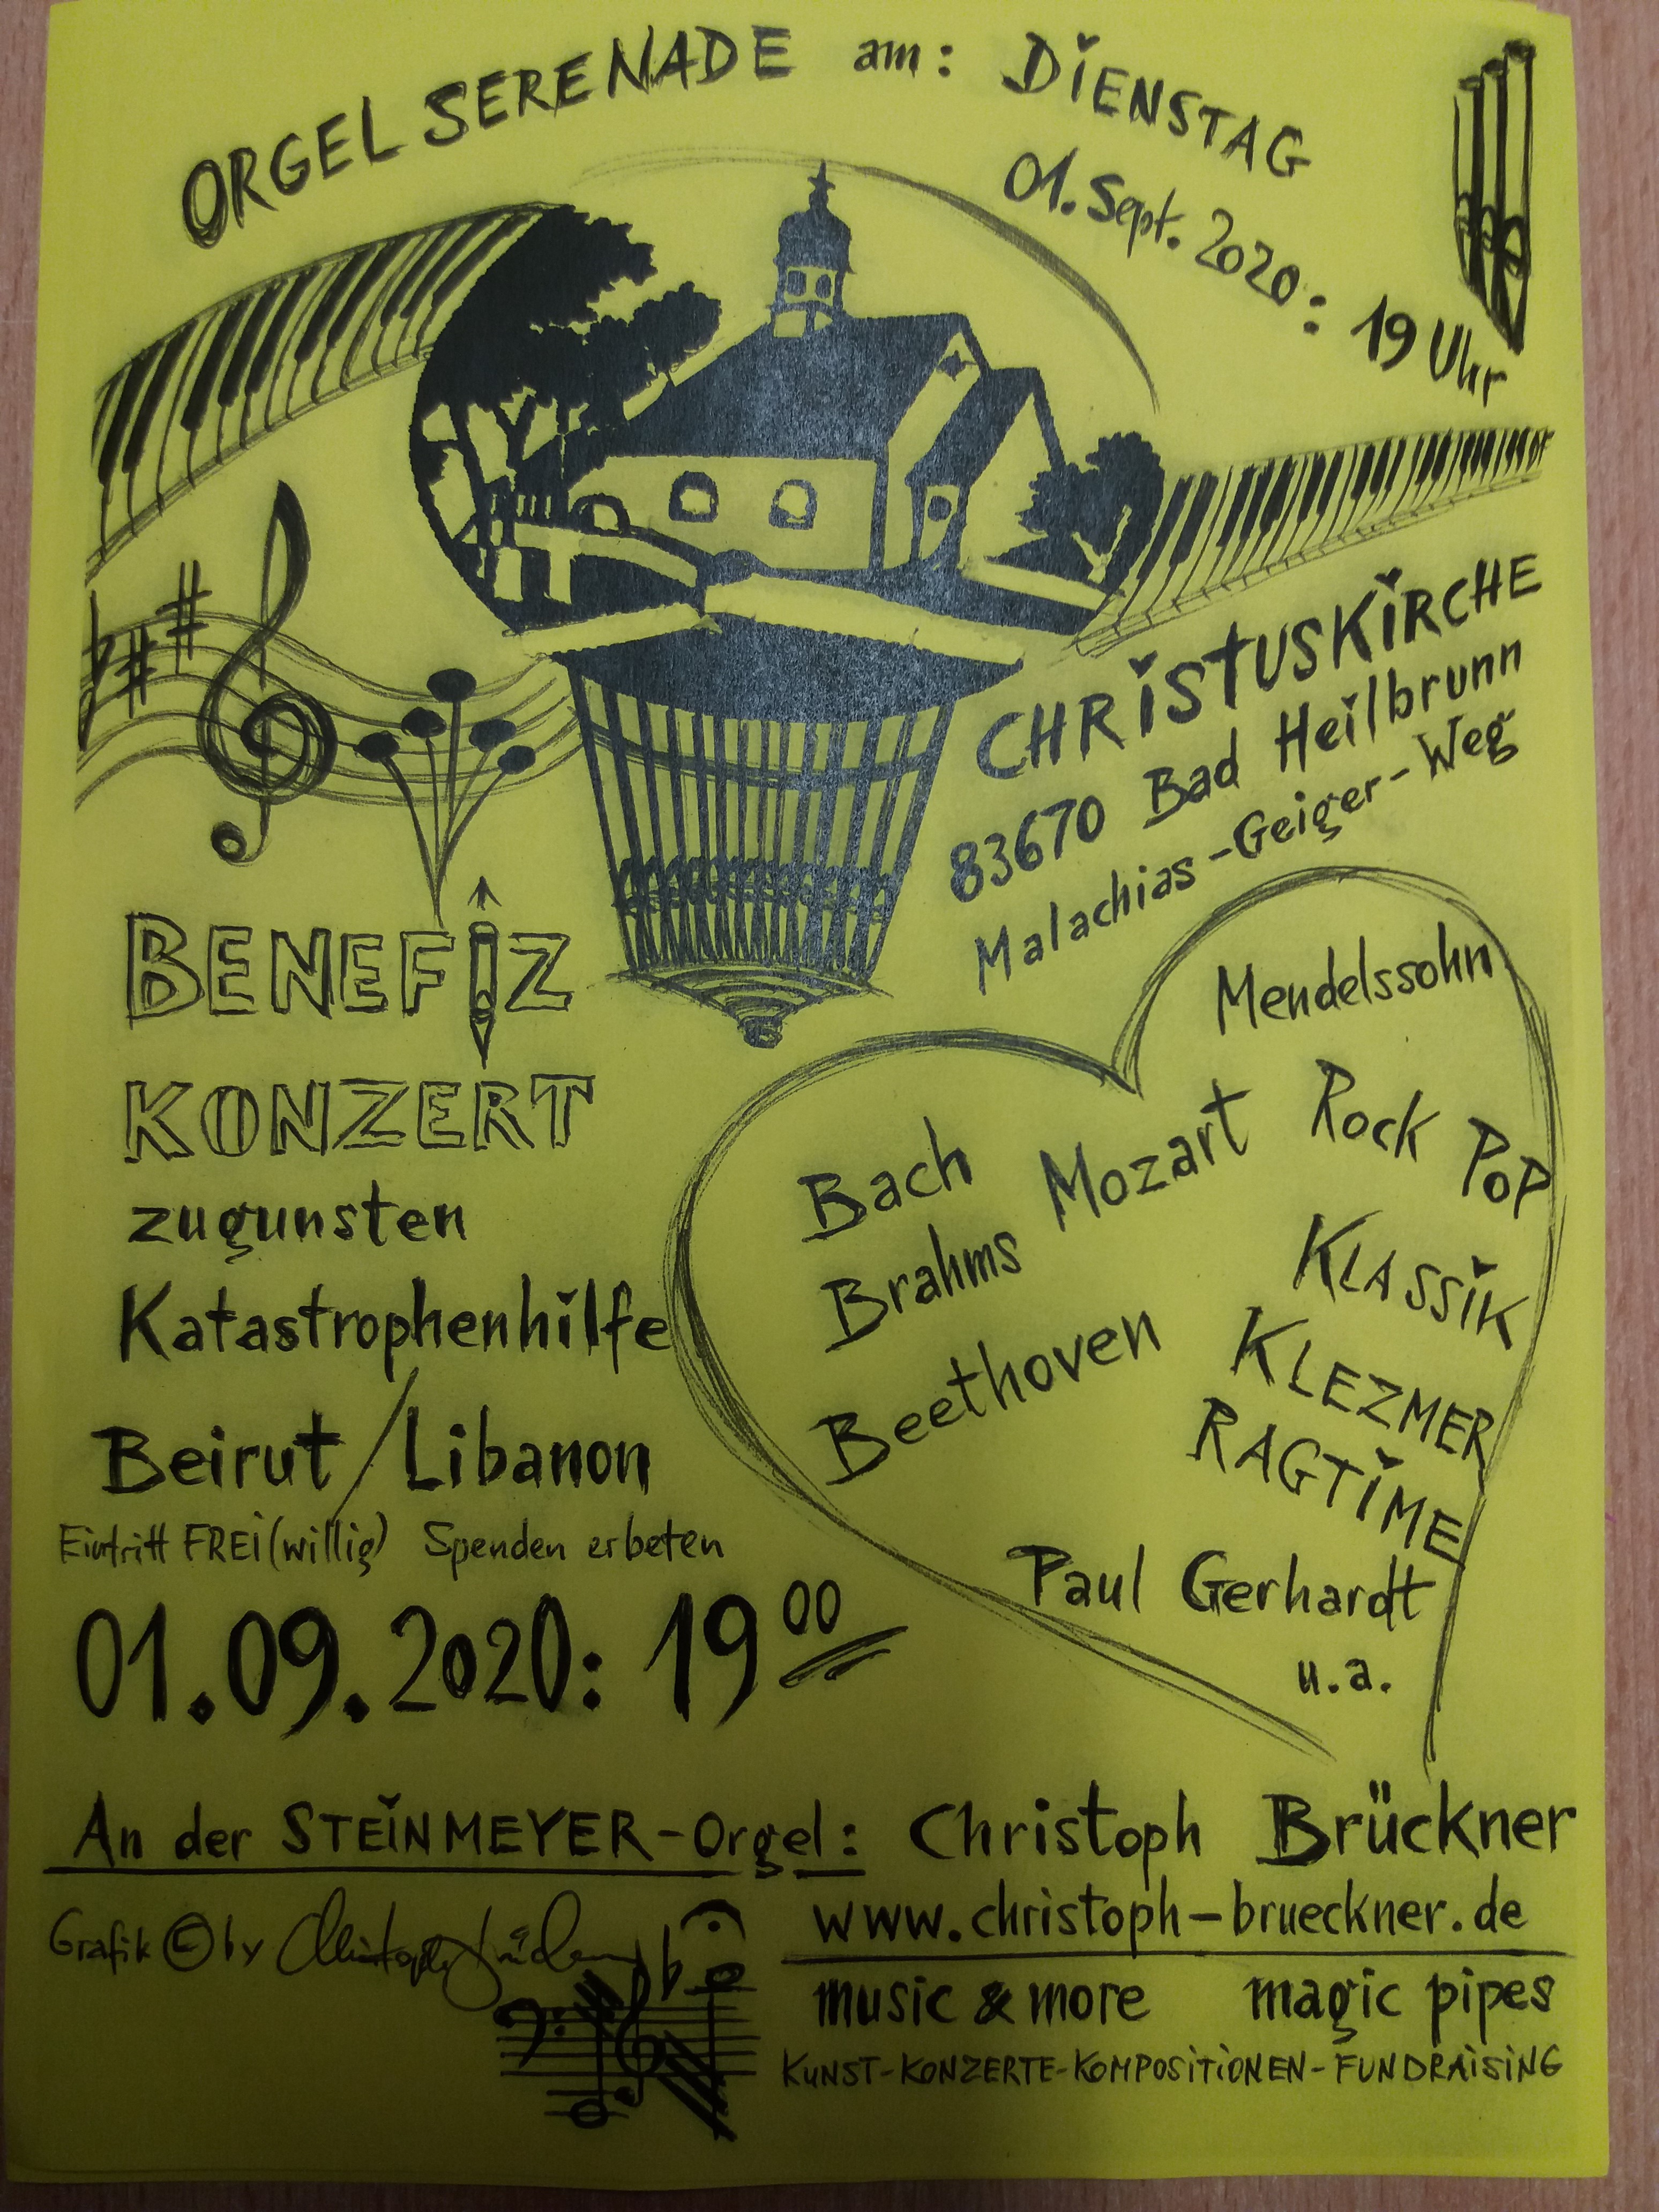 ORGELSERENADE am: DIENSTAG
01. Sept. 2020: 19 Uhr
CHRISTUSKIRCHE
83670 Bad Heilbrunn
Malachias-Geiger-Weg
BENEFIZ
KONZERT
zugunsten
Katastrophenhilfe
Beirut/Libanon
Eintritt FREI(willig) Spenden erbeten
01.09.2020: 19 00
Mendelssohn
Bach Mozart Rock POP
Brahms KLASSIK
Beethoven KLEZMER
RAGTIME
Paul Gerhardt
u.a.
An der STEINMEYER-Orgel: Christoph Brückner
Grafik © by Christoph Brückner
www.christoph-brueckner.de
music & more magic pipes
KUNST-KONZERTE-KOMPOSITIONEN-FUNDRAISING